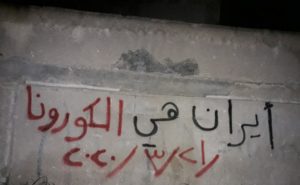 أيران هي الكورونا
٢٠٢٠/٣/